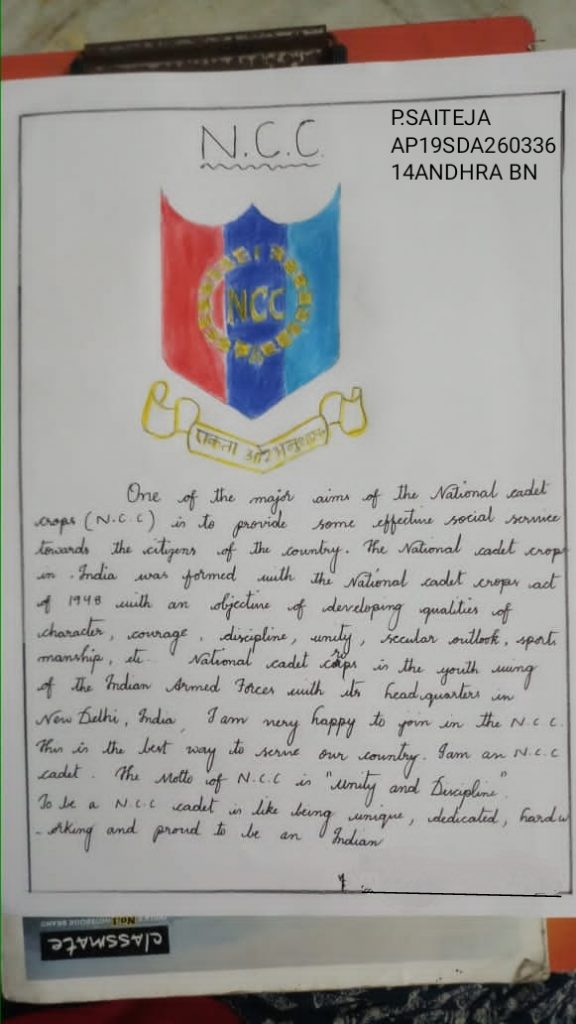 P.SAITEJA
AP19SDA260336
14ANDHRA BN
N.C.C.
NCC
एकता और अनुशासन
One of the major aims of the National cadet
crops (N.C.C) is to provide some effective social service
towards the citizens of the country. The National cadet crops
in India was formed with the National cadet crops act
of 1948 with an objective of developing qualities of
character, courage, discipline, unity, secular outlook, sports
manship, etc. National cadet corps is the youth wing
of the Indian Armed Forces with its head quarters in
New Delhi, India, I am very happy to join in the N.C.C.
This is the best way to serve our country. I am an N.C.C
cadet. The Motto of N.C.C is "Unity and Discipline".
To be a N.C.C cadet is like being unique, dedicated, hardw
-orking and proud to be an Indian
classmate